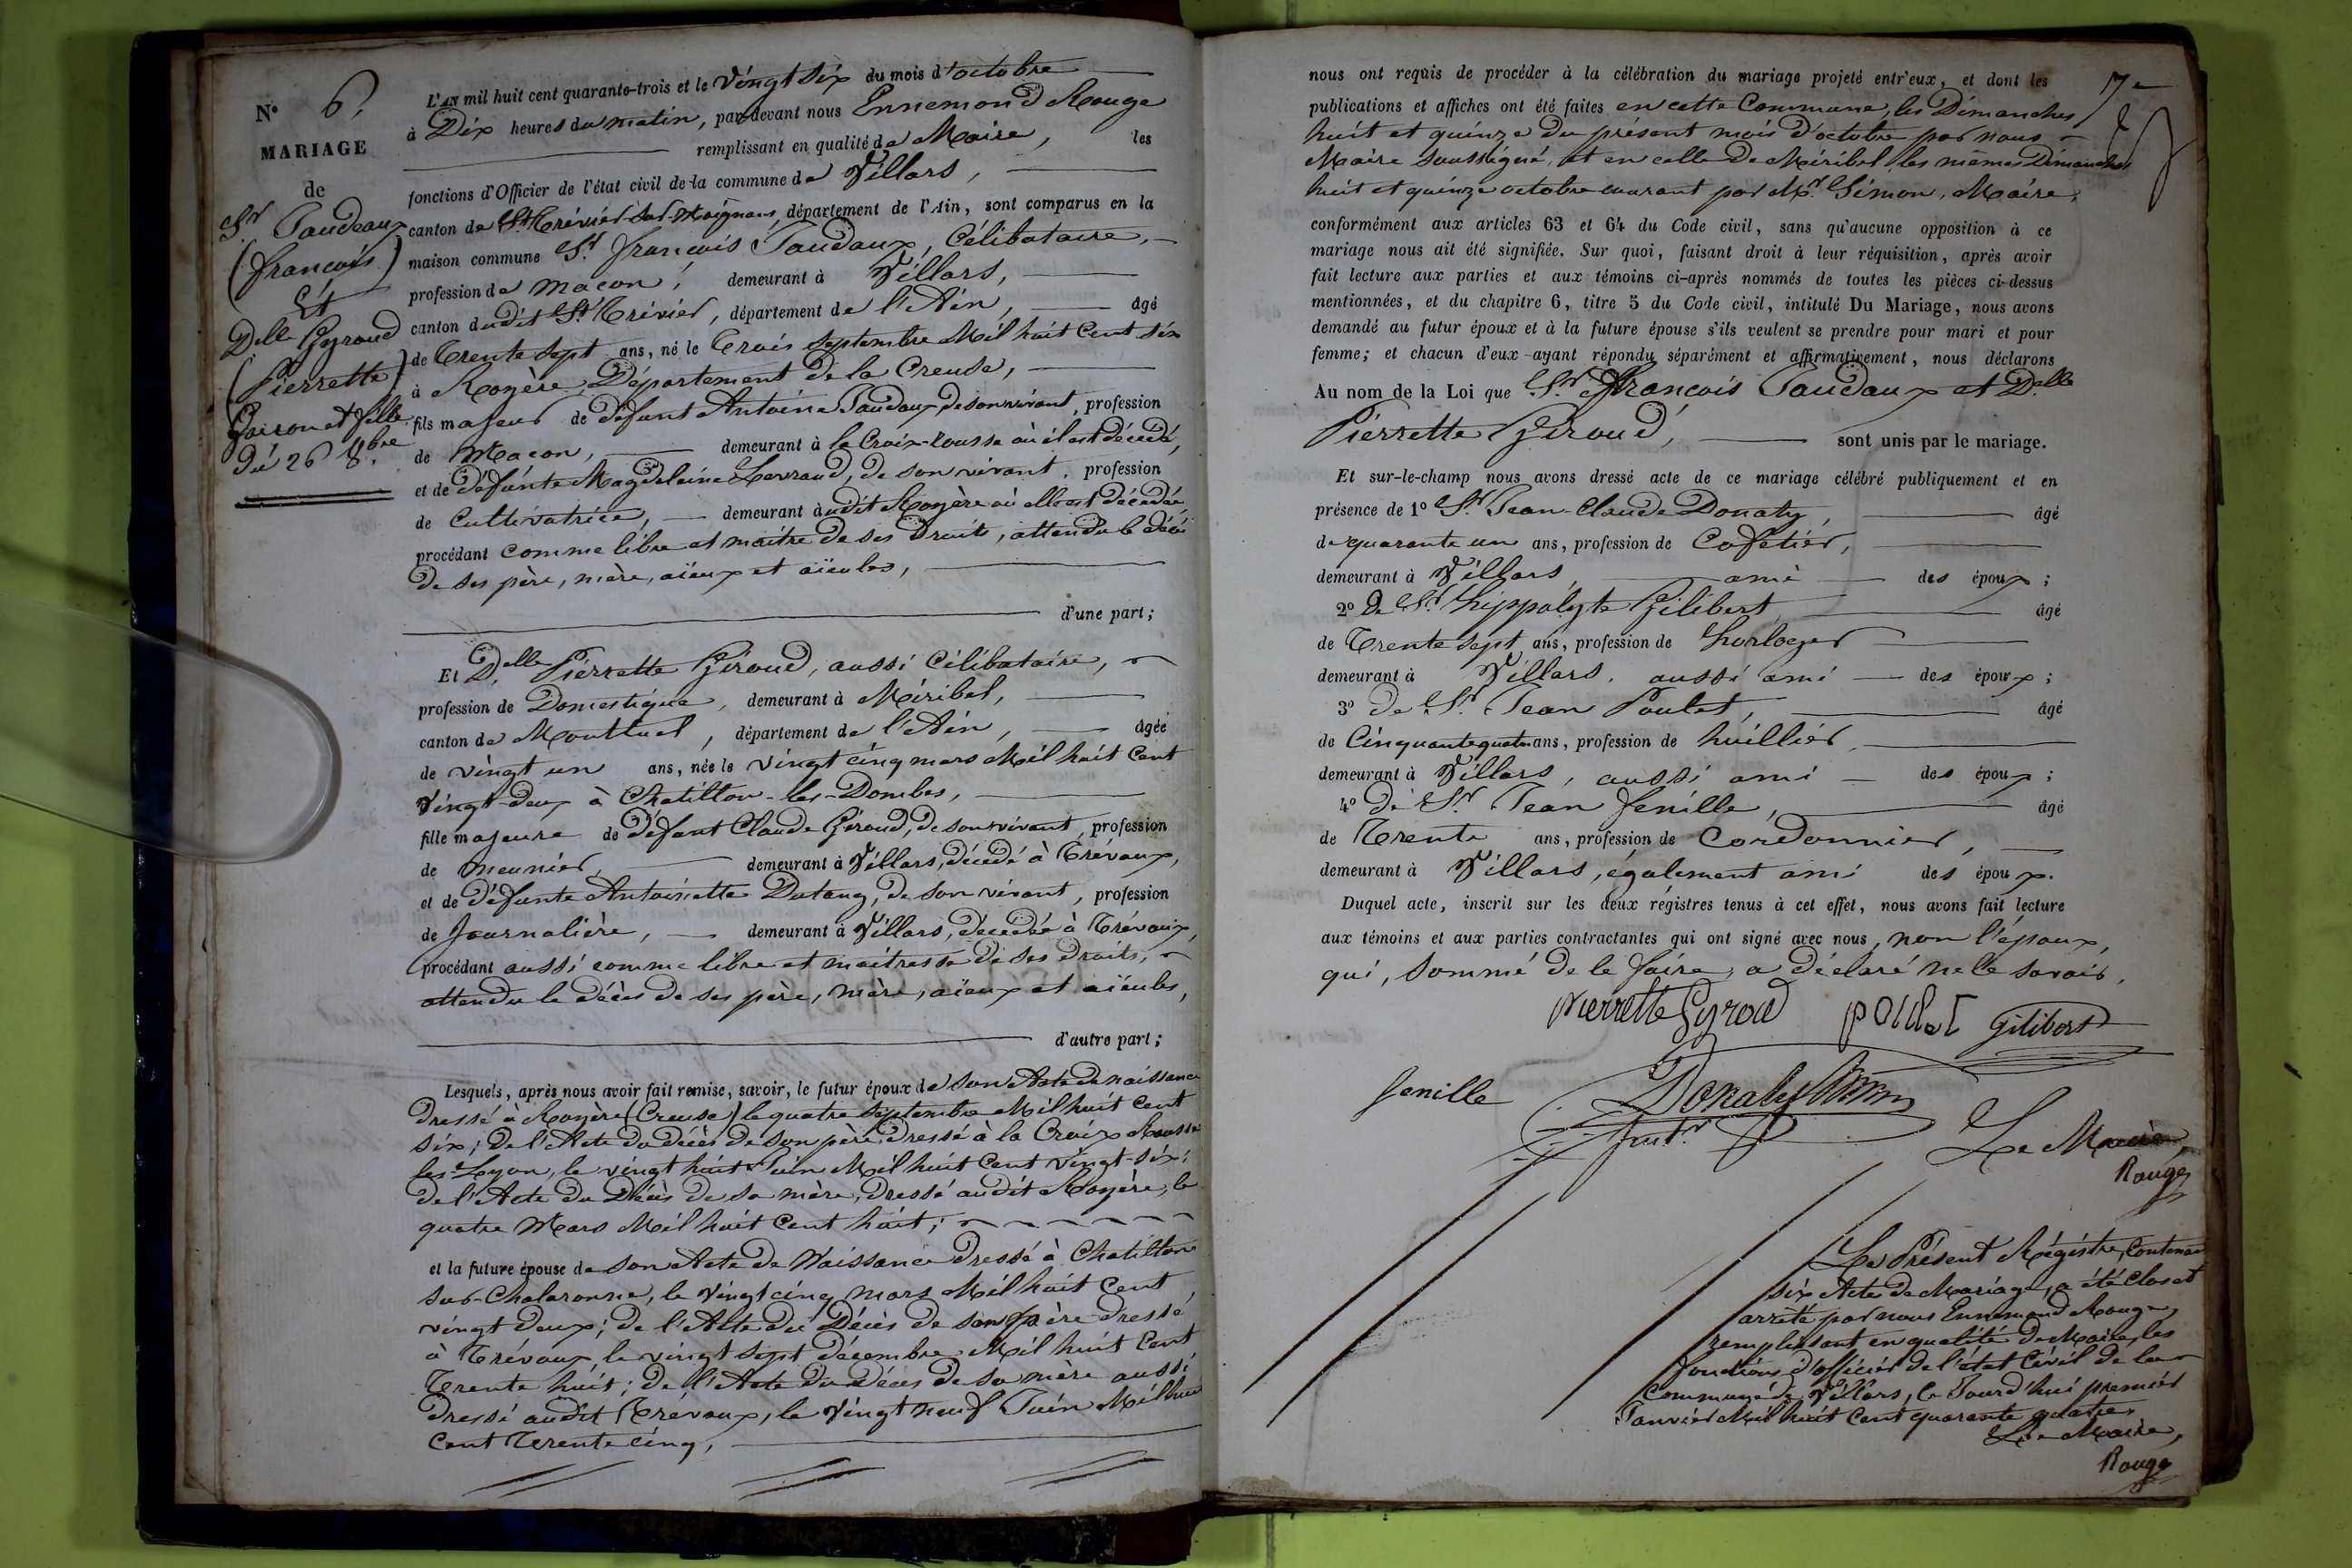 N° 6.
MARIAGE
de
Sr Taudeaux
(françois)
Et
Delle Gyroud
(Pierrette)
Garçon et fille
Du 26 8bre
L'AN mil huit cent quarante-trois et le Vingt six du mois d'octobre
à Dix heures du matin, par-devant nous Ennemond Rouge
remplissant en qualité de Maire, les
fonctions d'Officier de l'état civil de la commune de Villars,
canton de St Trévier-sur-Moignans, département de l'Ain, sont comparus en la
maison commune Sr françois Taudaux, Célibataire,
profession de maçon, demeurant à Villars,
canton dudit St Trévier, département de l'Ain, âgé
de Trente sept ans, né le Trois Septembre Mil huit Cent six
à Royère, Département de la Creuse,
fils majeur de défunt Antoine Taudaux de son vivant, profession
de Maçon, demeurant à la Croix-rousse où il est décédé,
et de défunte Magdeleine Lavraud, de son vivant, profession
de Cultivatrice, demeurant audit Royère où elle est décédée,
procédant comme libre et maître de ses Droits, attendu le décès
de ses père, mère, aïeux et aïeules,
d'une part;
Et Delle Pierrette Giroud, aussi Célibataire,
profession de Domestique, demeurant à Miribel,
canton de Montluel, département de l'Ain, âgée
de vingt un ans, née le vingt cinq mars Mil huit Cent
Vingt-deux à Chatillon-les-Dombes,
fille majeure de défunt Claude Giroud, de son vivant, profession
de meunier, demeurant à Villars, décédé à Trévoux,
et de défunte Antoinette Dutang, de son vivant, profession
de Journalière, demeurant à Villars, décédée à Trévoux,
procédant aussi comme libre et maitresse de ses droits,
attendu le décès de ses père, mère, aïeux et aïeules,
d'autre part;
Lesquels, après nous avoir fait remise, savoir, le futur époux de son Acte de naissance
Dressé à Royère (Creuse) le quatre Septembre Mil huit Cent
six; De l'Acte du décès de son père dressé à la Croix Rousse
les-Lyon, le vingt huit Juin Mil huit Cent Vingt-six;
de l'Acte du Décès de sa mère, dressé audit Royère, le
quatre Mars Mil huit Cent huit;
et la future épouse de son Acte de Naissance dressé à Chatillon
sur-Chalaronne, le Vingt cinq mars Mil huit Cent
vingt deux; de l'Acte du Décès de son père dressé
à Trévoux, le vingt sept décembre Mil huit Cent
Trente huit; de l'Acte du Décès de sa mère aussi
dressé audit Trévoux, le Vingt neuf Juin Mil huit
Cent Trente cinq,
7e
nous ont requis de procéder à la célébration du mariage projeté entr'eux, et dont les
publications et affiches ont été faites en cette Commune, les Dimanches
huit et quinze du présent mois d'octobre par nous
Maire soussigné, et en celle de Miribel les mêmes Dimanches
huit et quinze octobre courant par Mr Simon, Maire,
conformément aux articles 63 et 64 du Code civil, sans qu'aucune opposition à ce
mariage nous ait été signifiée. Sur quoi, faisant droit à leur réquisition, après avoir
fait lecture aux parties et aux témoins ci-après nommés de toutes les pièces ci-dessus
mentionnées, et du chapitre 6, titre 5 du Code civil, intitulé Du Mariage, nous avons
demandé au futur époux et à la future épouse s'ils veulent se prendre pour mari et pour
femme; et chacun d'eux ayant répondu séparément et affirmativement, nous déclarons
Au nom de la Loi que Sr françois Taudaux et Delle
Pierrette Giroud, sont unis par le mariage.
Et sur-le-champ nous avons dressé acte de ce mariage célébré publiquement et en
présence de 1° Sr Jean-Claude Donaty, âgé
de quarante un ans, profession de Cafetier,
demeurant à Villars, ami des époux;
2° De Sr hippolyte Gilibert âgé
de Trente sept ans, profession de horloger
demeurant à Villars, aussi ami des époux;
3° De Sr Jean Poulet, âgé
de Cinquante quatre ans, profession de huillier,
demeurant à Villars, aussi ami des époux;
4° De Sr Jean fenille, âgé
de Trente ans, profession de Cordonnier,
demeurant à Villars, également ami des époux.
Duquel acte, inscrit sur les deux régistres tenus à cet effet, nous avons fait lecture
aux témoins et aux parties contractantes qui ont signé avec nous, non l'époux,
qui, sommé de le faire, a déclaré ne le savoir.
Pierrette Gyroud poulet Gilibert
fenille Donaty
Le Maire,
Rouge
Le Présent Régistre, Contenant
six Actes de Mariage, a été Clos et
arrêté par nous Ennemond Rouge,
remplissant en qualité de Maire, les
fonctions d'officier de l'état Civil de la
Commune de Villars, le Jourd'hui premier
Janvier Mil huit Cent quarante quatre
Le Maire,
Rouge